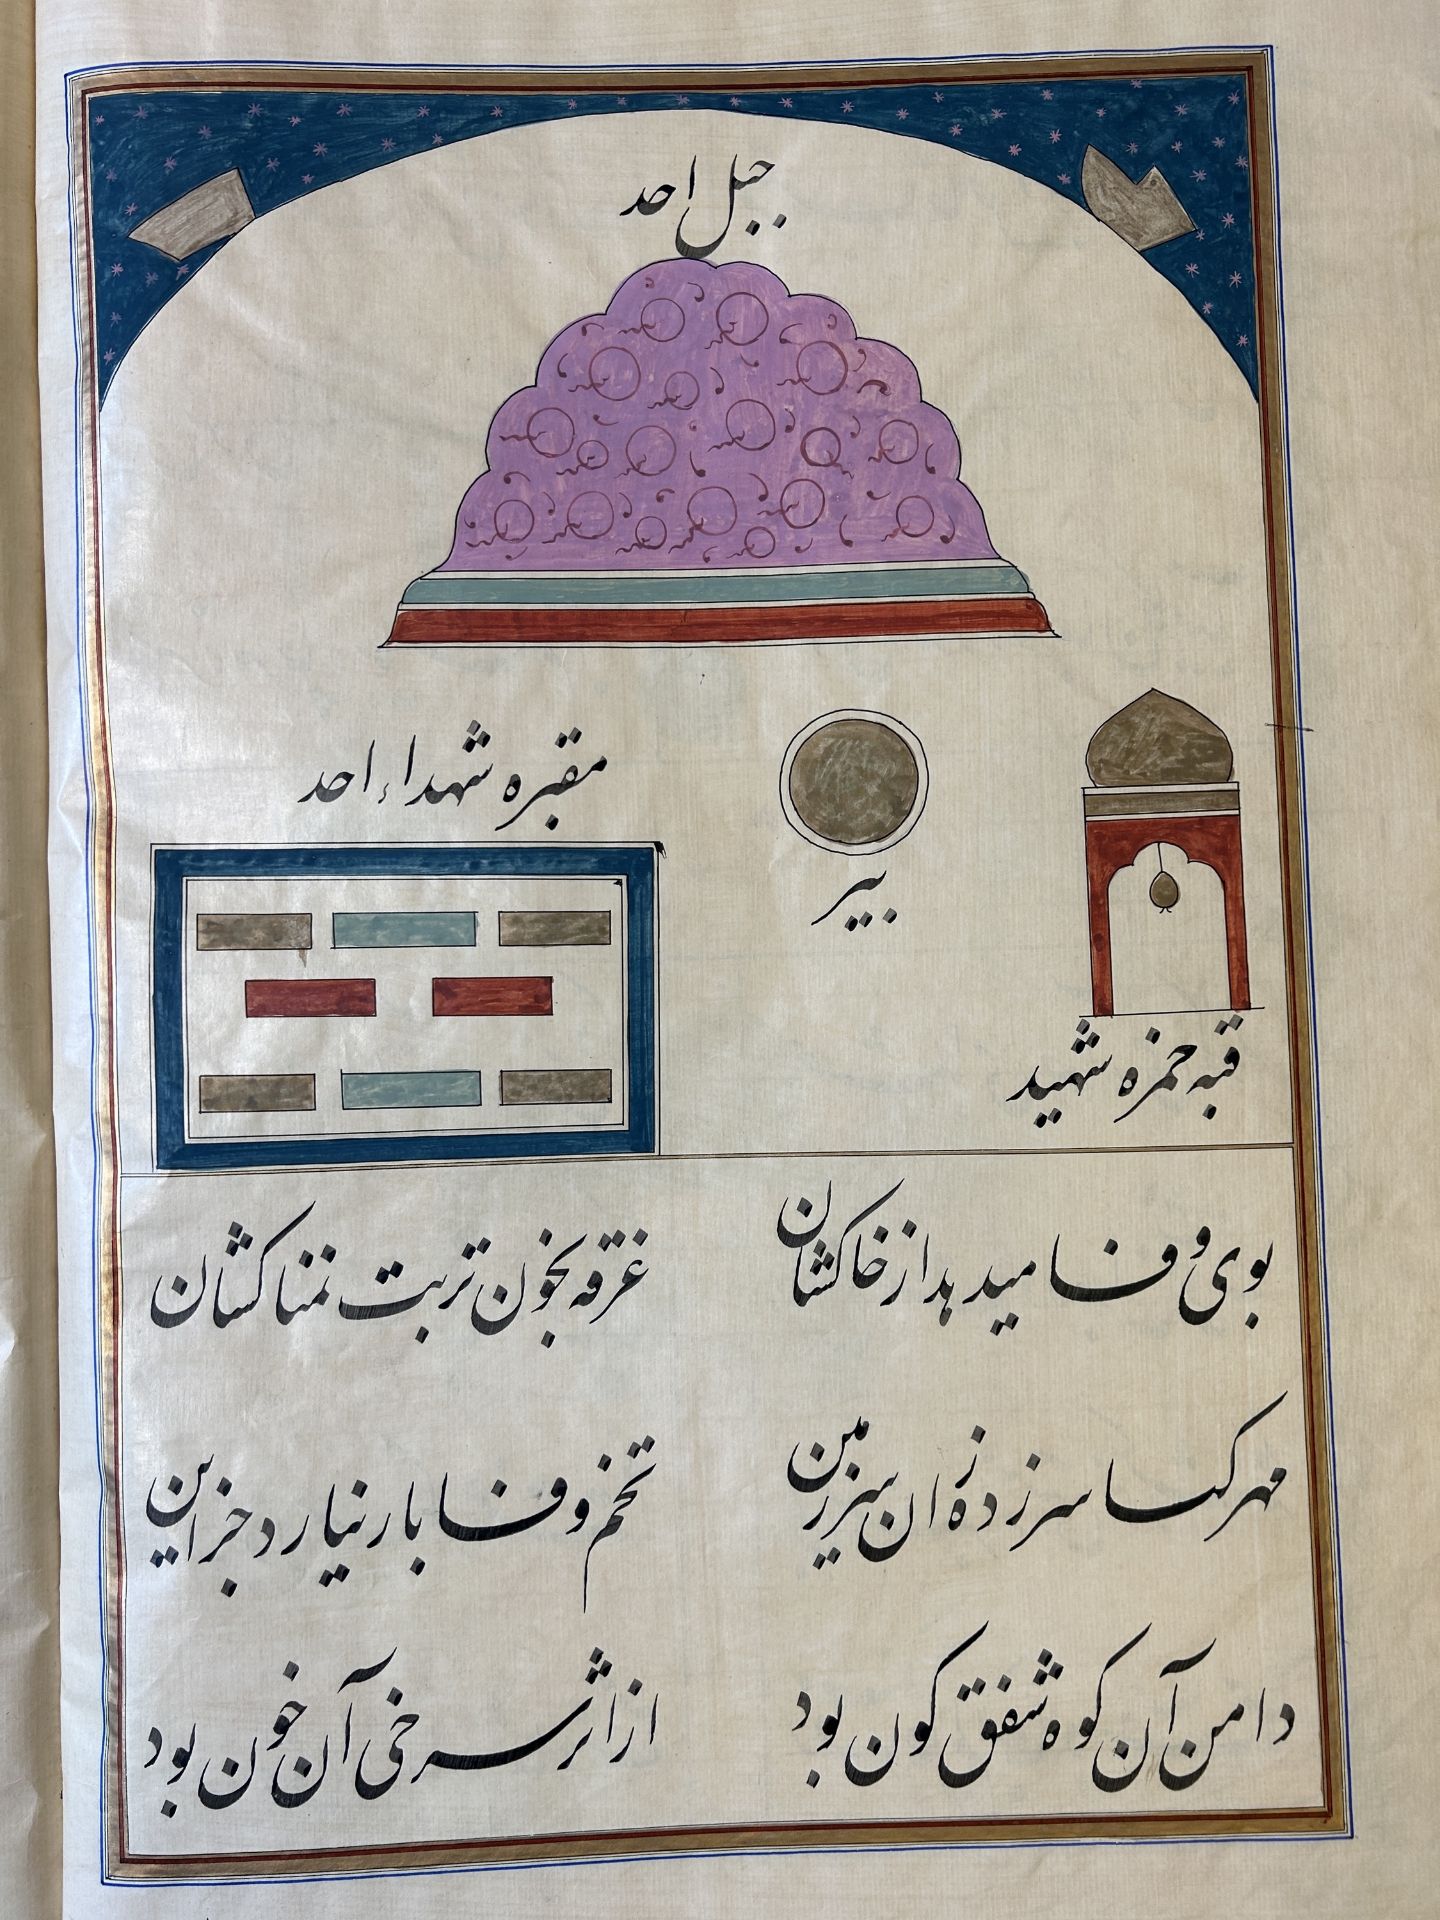 جبل احد
مقبره شهداء احد
بیر
قبه حمزه شهید
بوی وفا میدهد از خاکشان
غرقه بخون تربت نمناکشان
مهر کسا سرزده زان سرزمین
تخم وفا بار نیارد جز این
دامن آن کوه شفق کون بود
از اثر سرخی آن خون بود